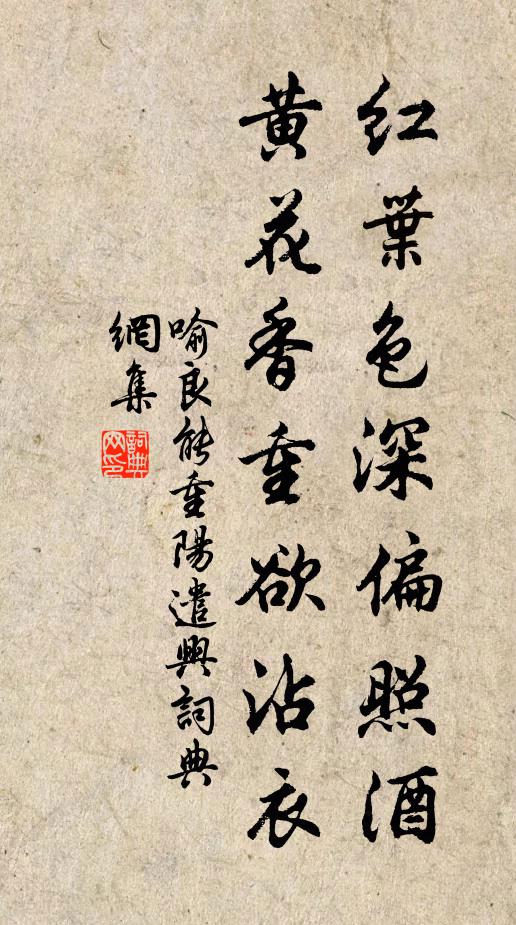 紅葉色深偏照酒
黃花香重欲沾衣
喻良能重陽遣興詞典
網集
詞典
网印